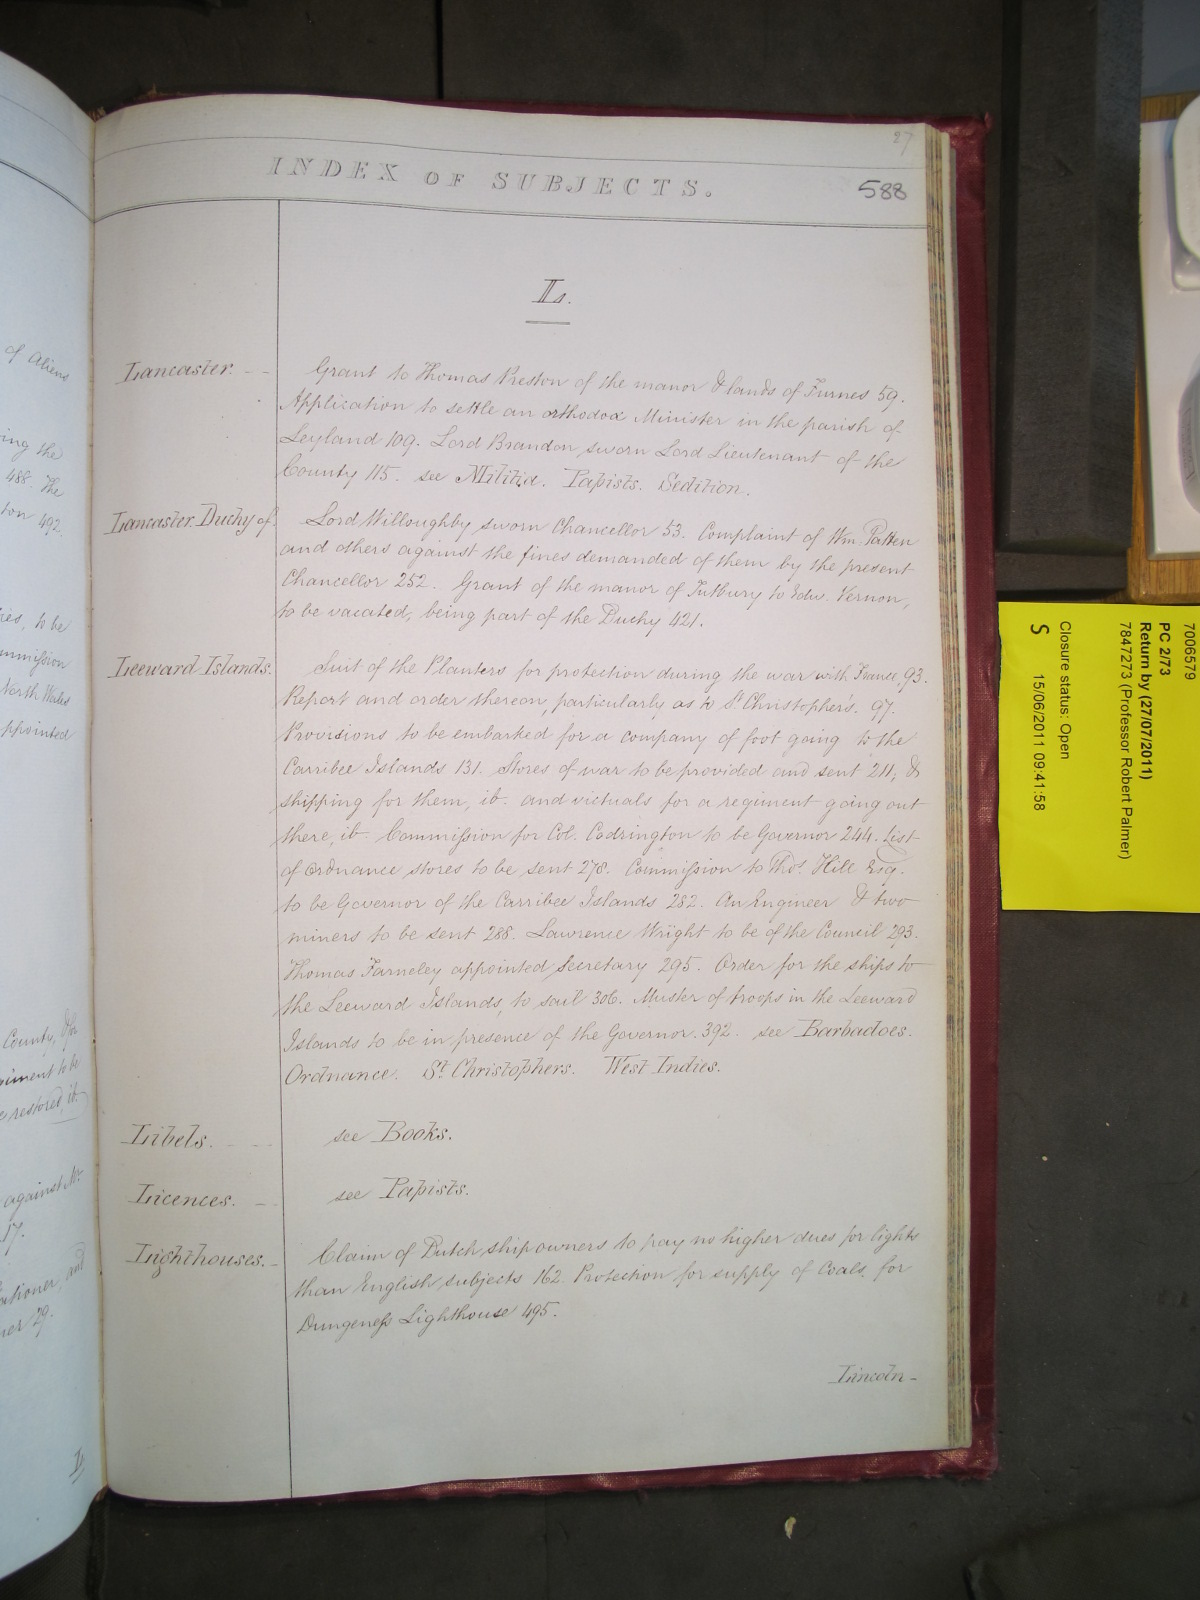 27
INDEX OF SUBJECTS.
588
L.
Lancaster. Grant to Thomas Preston of the manor & lands of Furnes 59.
Application to settle an orthodox Minister in the parish of
Leyland 109. Lord Brandon sworn Lord Lieutenant of the
County 115. see Militia. Papists. Sedition.
Lancaster Duchy of. Lord Willoughby sworn Chancellor 53. Complaint of Wm. Patten
and others against the fines demanded of them by the present
Chancellor 252. Grant of the manor of Tutbury to Edw. Vernon,
to be vacated, being part of the Duchy 421.
Leeward Islands. Suit of the Planters for protection during the war with France, 93.
Report and order thereon, particularly as to St Christopher's. 97.
Provisions to be embarked for a company of foot going to the
Carribee Islands 131. Stores of war to be provided and sent 211, &
shipping for them, ib. and victuals for a regiment going out
there, ib. Commission for Col. Codrington to be Governor 244. List
of Ordnance stores to be sent 278. Commission to Thos. Hill Esq.
to be Governor of the Carribee Islands 282. An Engineer & two
miners to be sent 288. Lawrence Wright to be of the Council 293.
Thomas Farneley appointed Secretary 295. Order for the ships to
the Leeward Islands, to sail 306. Muster of troops in the Leeward
Islands to be in presence of the Governor. 392. see Barbadoes.
Ordnance. St Christophers. West Indies.
Libels. see Books.
Licences. see Papists.
Lighthouses. Claim of Dutch ship owners to pay no higher dues for lights
than English subjects 162. Protection for supply of Coals for
Dungeness Lighthouse 495.
Lincoln-
of Aliens
ing the
488. The
ton 492.
to be
Commission
North Wales
appointed
County, &for
restored, ib.
against
17.
and
29.
L
7006579
PC 2/73
Return by (27/07/2011)
7847273 (Professor Robert Palmer)
Closure status: Open
S 15/06/2011 09:41:58